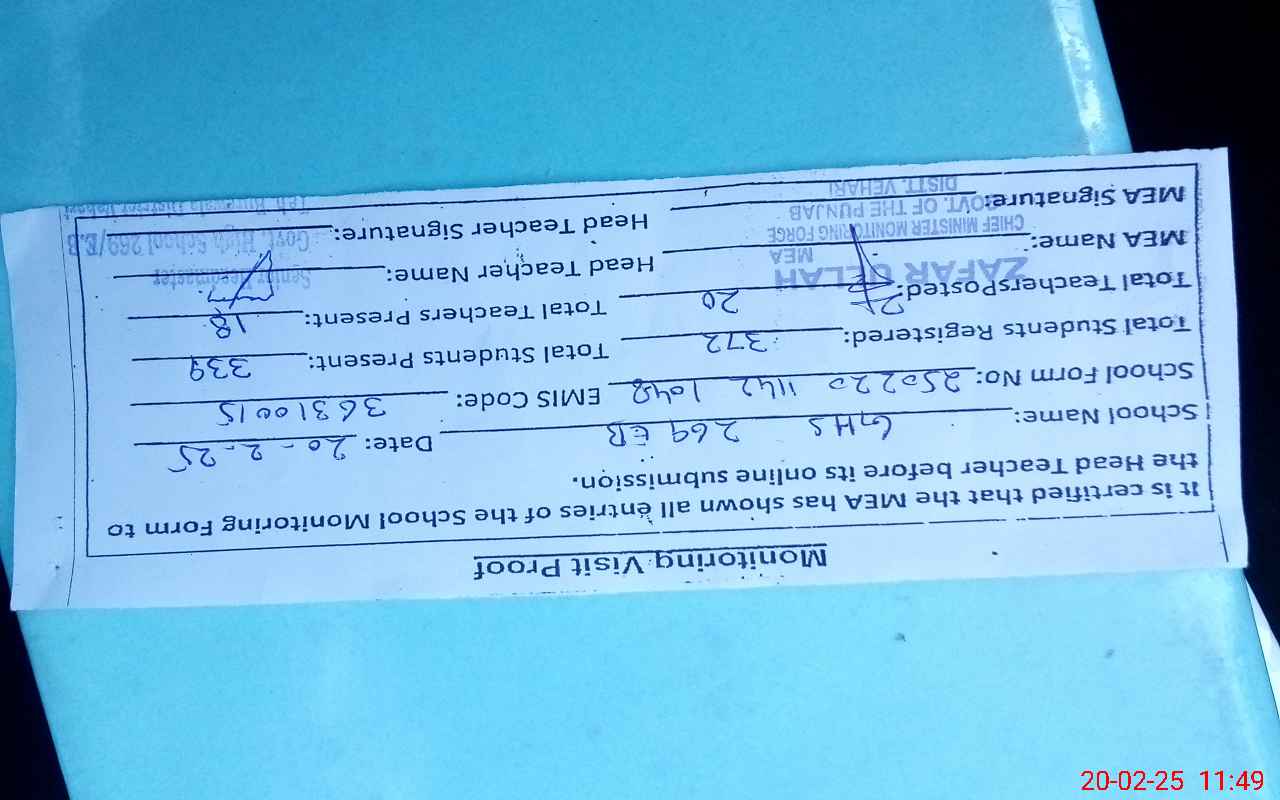 Monitoring Visit Proof
It is certified that the MEA has shown all entries of the School Monitoring Form to
the Head Teacher before its online submission.
School Name: GHS 269 EB Date: 20-2-25
School Form No: 250220 1142 1048 EMIS Code: 36310015
Total Students Registered: 372 Total Students Present: 339
Total TeachersPosted: 20 Total Teachers Present: 18
MEA Name: ZAFAR ULLAH Head Teacher Name:
MEA Signature: Head Teacher Signature:
MEA
CHIEF MINISTER MONITORING FORCE
GOVT. OF THE PUNJAB
DISTT. VEHARI
Senior Headmaster
Govt. High School 269/E.B
Teh Burewala District Vehari
20-02-25 11:49